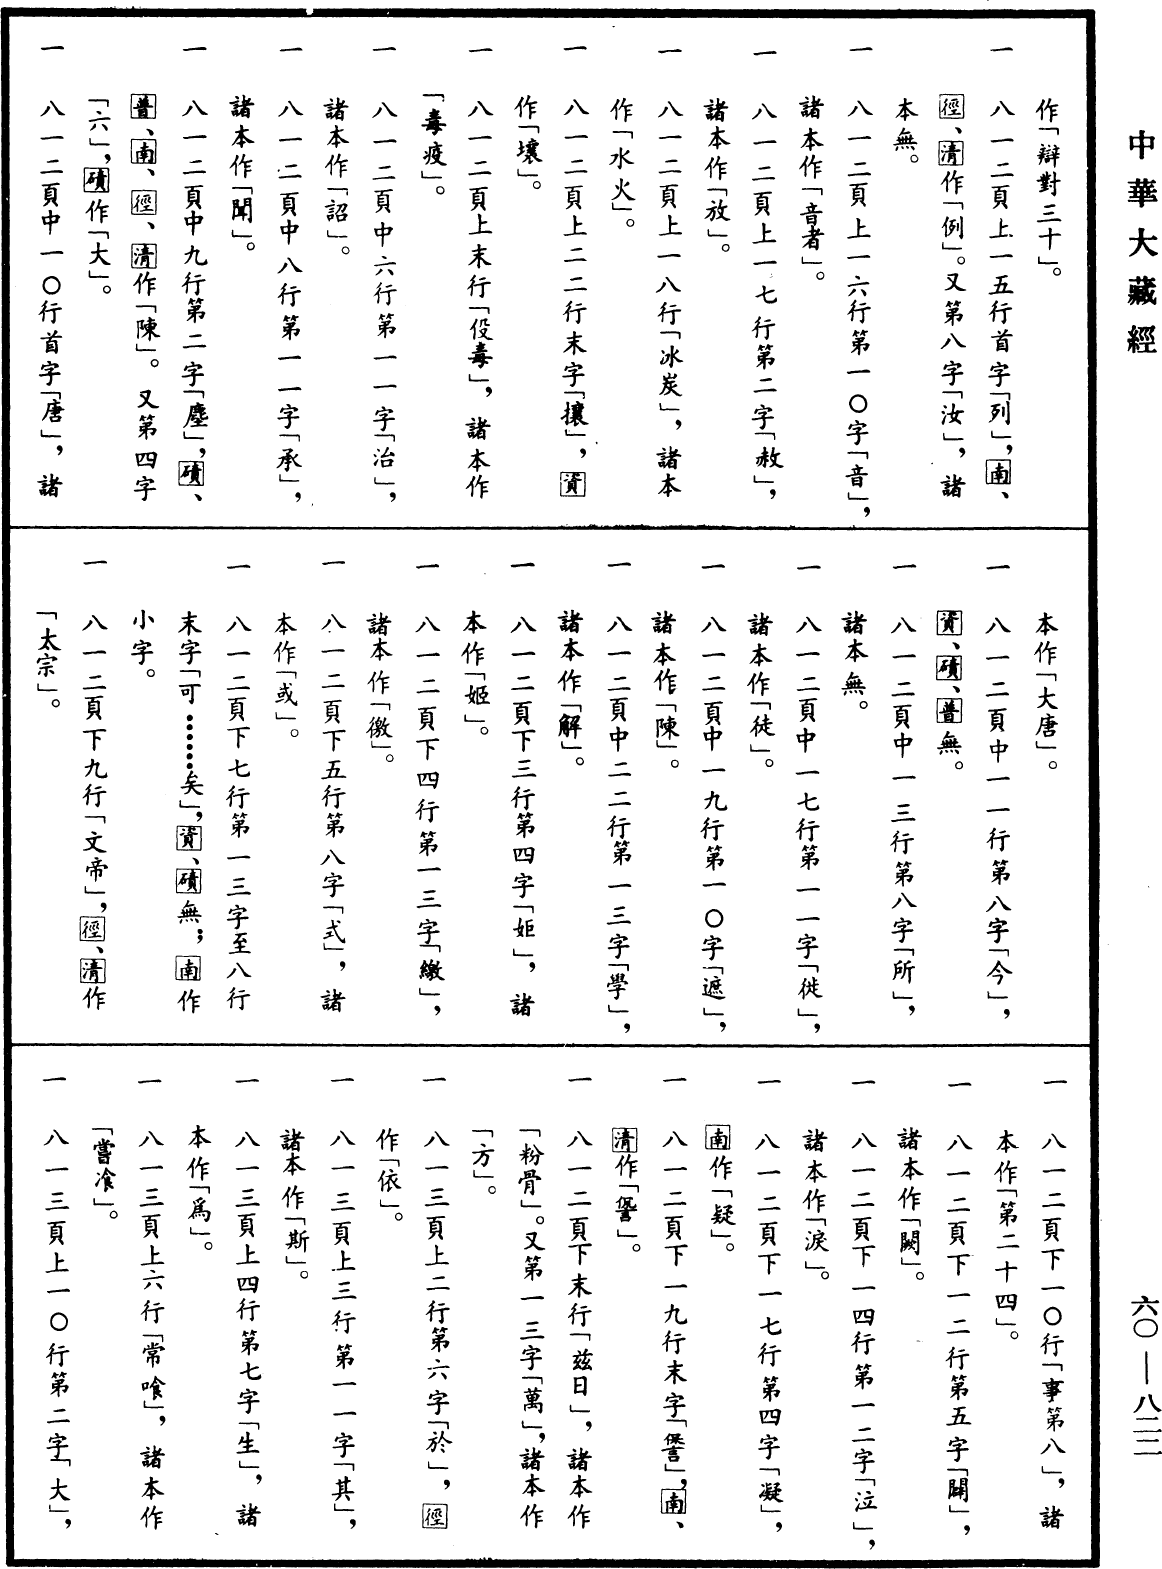 中華大藏經
作「辯對三十」。
一　八一二頁上一五行首字「列」，南、
徑、清作「例」。又第八字「汝」，諸
本無。
一　八一二頁上一六行第一〇字「音」，
諸本作「音者」。
一　八一二頁上一七行第二字「赦」，
諸本作「放」。
一　八一二頁上一八行「冰炭」，諸本
作「水火」。
一　八一二頁上二二行末字「攘」，資
作「壤」。
一　八一二頁上末行「伇毒」，諸本作
「毒疫」。
一　八一二頁中六行第一一字「治」，
諸本作「詔」。
一　八一二頁中八行第一一字「承」，
諸本作「聞」。
一　八一二頁中九行第二字「塵」，磧、
普、南、徑、清作「陳」。又第四字
「六」，磧作「大」。
一　八一二頁中一〇行首字「唐」，諸
本作「大唐」。
一　八一二頁中一一行第八字「今」，
資、磧、普無。
一　八一二頁中一三行第八字「所」，
諸本無。
一　八一二頁中一七行第一一字「徙」，
諸本作「徒」。
一　八一二頁中一九行第一〇字「遮」，
諸本作「陳」。
一　八一二頁中二二行第一三字「學」，
諸本作「解」。
一　八一二頁下三行第四字「姖」，諸
本作「姬」。
一　八一二頁下四行第一三字「繳」，
諸本作「徼」。
一　八一二頁下五行第八字「式」，諸
本作「或」。
一　八一二頁下七行第一三字至八行
末字「可……矣」，資、磧無；南作
小字。
一　八一二頁下九行「文帝」，徑、清作
「太宗」。
一　八一二頁下一〇行「事第八」，諸
本作「第二十四」。
一　八一二頁下一二行第五字「闢」，
諸本作「闕」。
一　八一二頁下一四行第一二字「泣」，
諸本作「淚」。
一　八一二頁下一七行第四字「凝」，
南作「疑」。
一　八一二頁下一九行末字「」，南、
清作「」。
一　八一二頁下末行「兹日」，諸本作
「粉骨」。又第一三字「萬」，諸本作
「方」。
一　八一三頁上二行第六字「於」，徑
作「依」。
一　八一三頁上三行第一一字「其」，
諸本作「斯」。
一　八一三頁上四行第七字「生」，諸
本作「爲」。
一　八一三頁上六行「常喰」，諸本作
「嘗飡」。
一　八一三頁上一〇行第二字「大」，
六〇—八二二